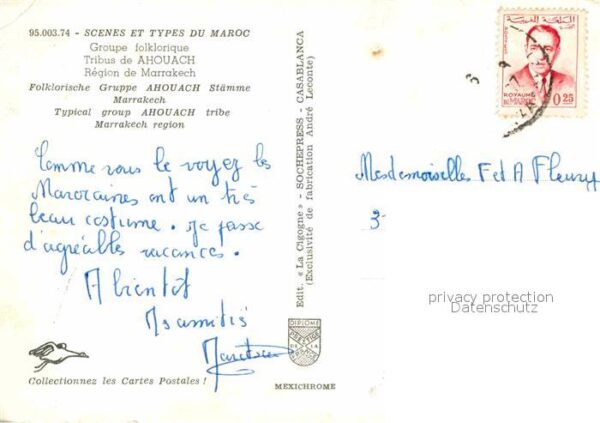 95.003.74 - SCENES ET TYPES DU MAROC
Groupe folklorique
Tribus de AHOUACH
Région de Marrakech
Folklorische Gruppe AHOUACH Stämme
Marrakech
Typical group AHOUACH tribe
Marrakech region
Comme vous le voyez les
Marocaines ont un très
beau costume. Je passe
d'agréables vacances.
A bientôt
Mes amitiés
Collectionnez les Cartes Postales !
Edit. « La Cigogne » - SOCHEPRESS - CASABLANCA
(Exclusivité de fabrication André Leconte)
DIPLOME
PRESTIGE
MEXICHROME
المملكة المغربية
POSTES
ROYAUME
DU MAROC
0,25
Mesdemoiselles F et A Fleury
3
privacy protection
Datenschutz